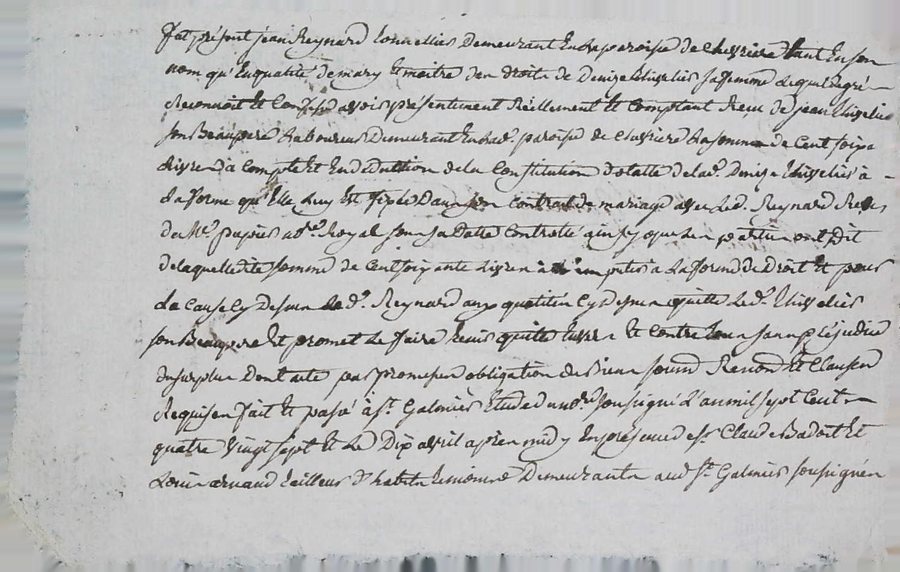 fut présent jean Reynard Tonnellier demeurant en la paroisse de Chevriere tant en son
nom qu'en qualité de mary et maitre des droits de Denize sa femme lequel de gré
Reconnoit et Confesse avoir présentement Réellement et Comptant Reçu de jean
son Beaupere Laboureur Demeurant en lad. paroisse de Chevriere La somme de Cent soixante
Livres à Compte et En deduction de la Constitution dotalle de lad. Denize à
La forme qu'Elle Luy Est fixée Dans son Contrat de mariage avec Led. Reynard Reçu
de Me notre Royal sous sa Datte Controllé ainsy que Les parties ont Dit
de laquelle dite somme de Cent soixante Livres à imputer à La forme de Droit et pour
La Cause Cy dessus Led. Reynard aux qualités Cy dessus quitte Led.
son Beaupere Et promet Le faire tenir quitte Envers Et Contre tous sans préjudice
du surplus Dont acte par promesses obligation de biens soumis Renond Et Clauses
Requises fait Et passé à St. Galmier Etude du nore. soussigné L'an mil sept Cent
quatre vingt sept Et Le Dix avril après midy En présence de sr. Claude Badoit Et
Louis arnaud tailleur d'habits temoins Demeurants aud. St. Galmier soussignés